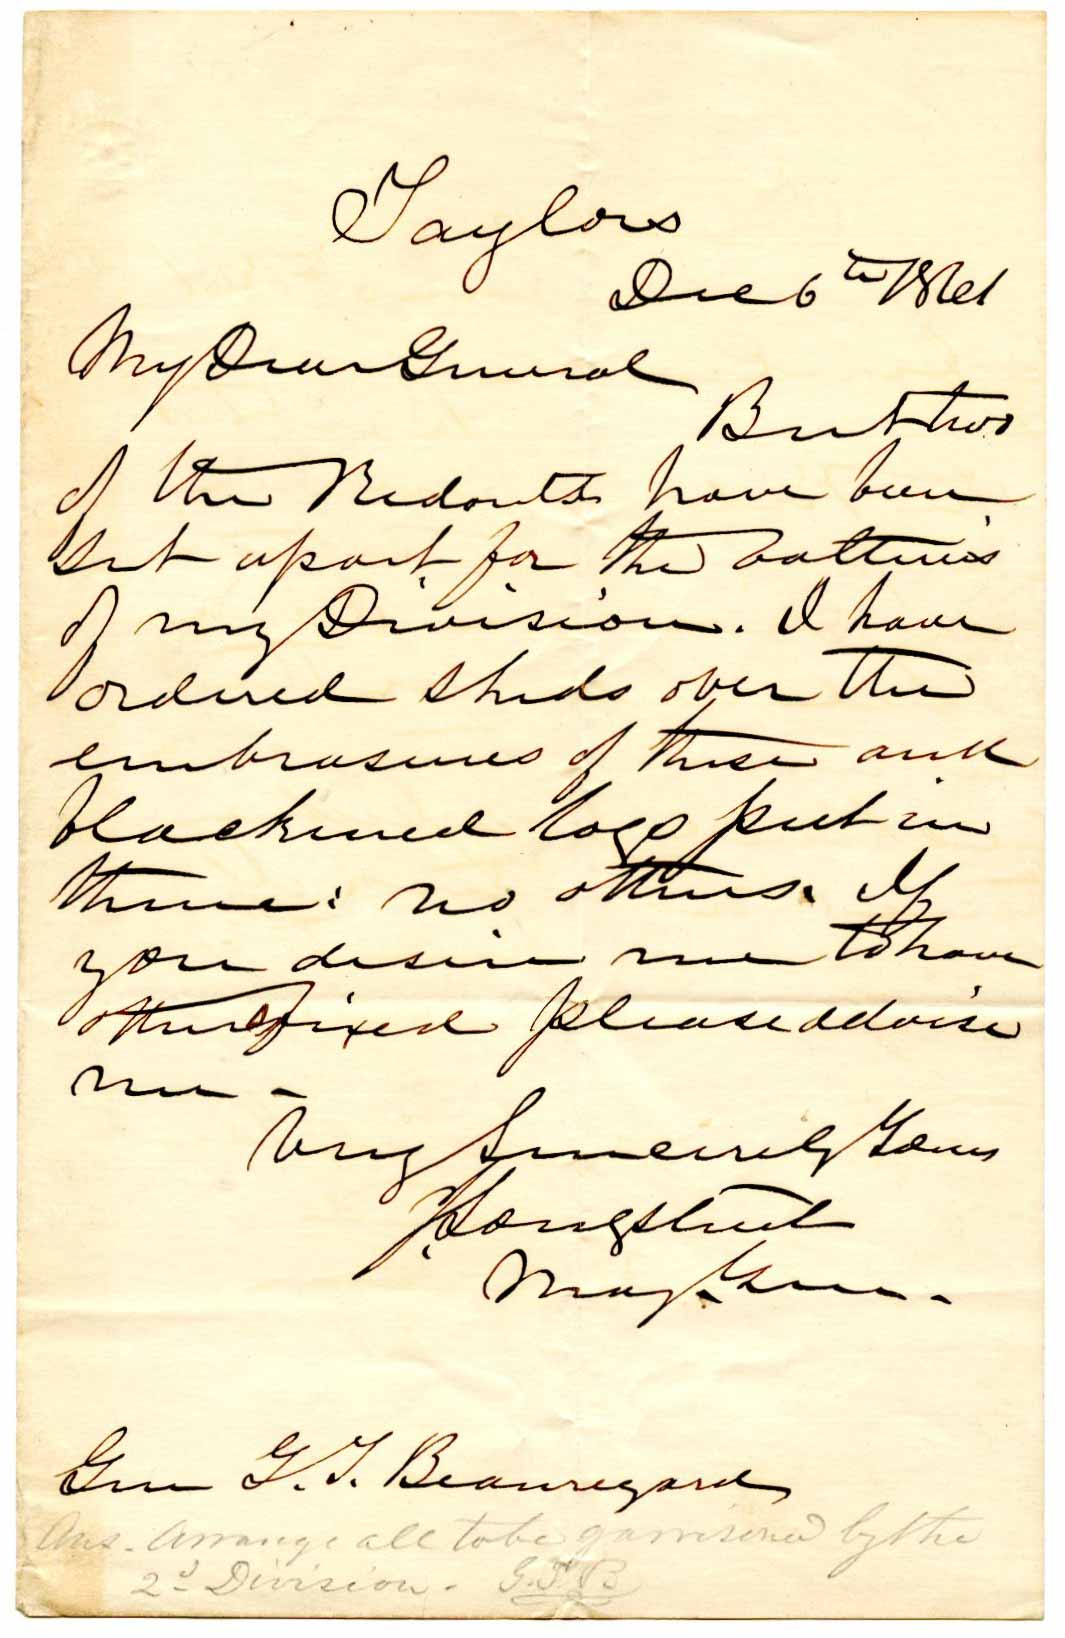 Taylors
Dec 6th 1861
My Dear General
But two
of the Redouts have been
set apart for the batteries
of my Division. I have
ordered sheds over the
embrasures of these and
blackened logs put in
them: no others. If
you desire me to have
others fixed please advise
me -
Very Sincerely Yours
J. Longstreet
Maj. Gen.
Gen G. T. Beauregard
Ans. Arrange all to be garrisoned by the
2d Division. G.T.B